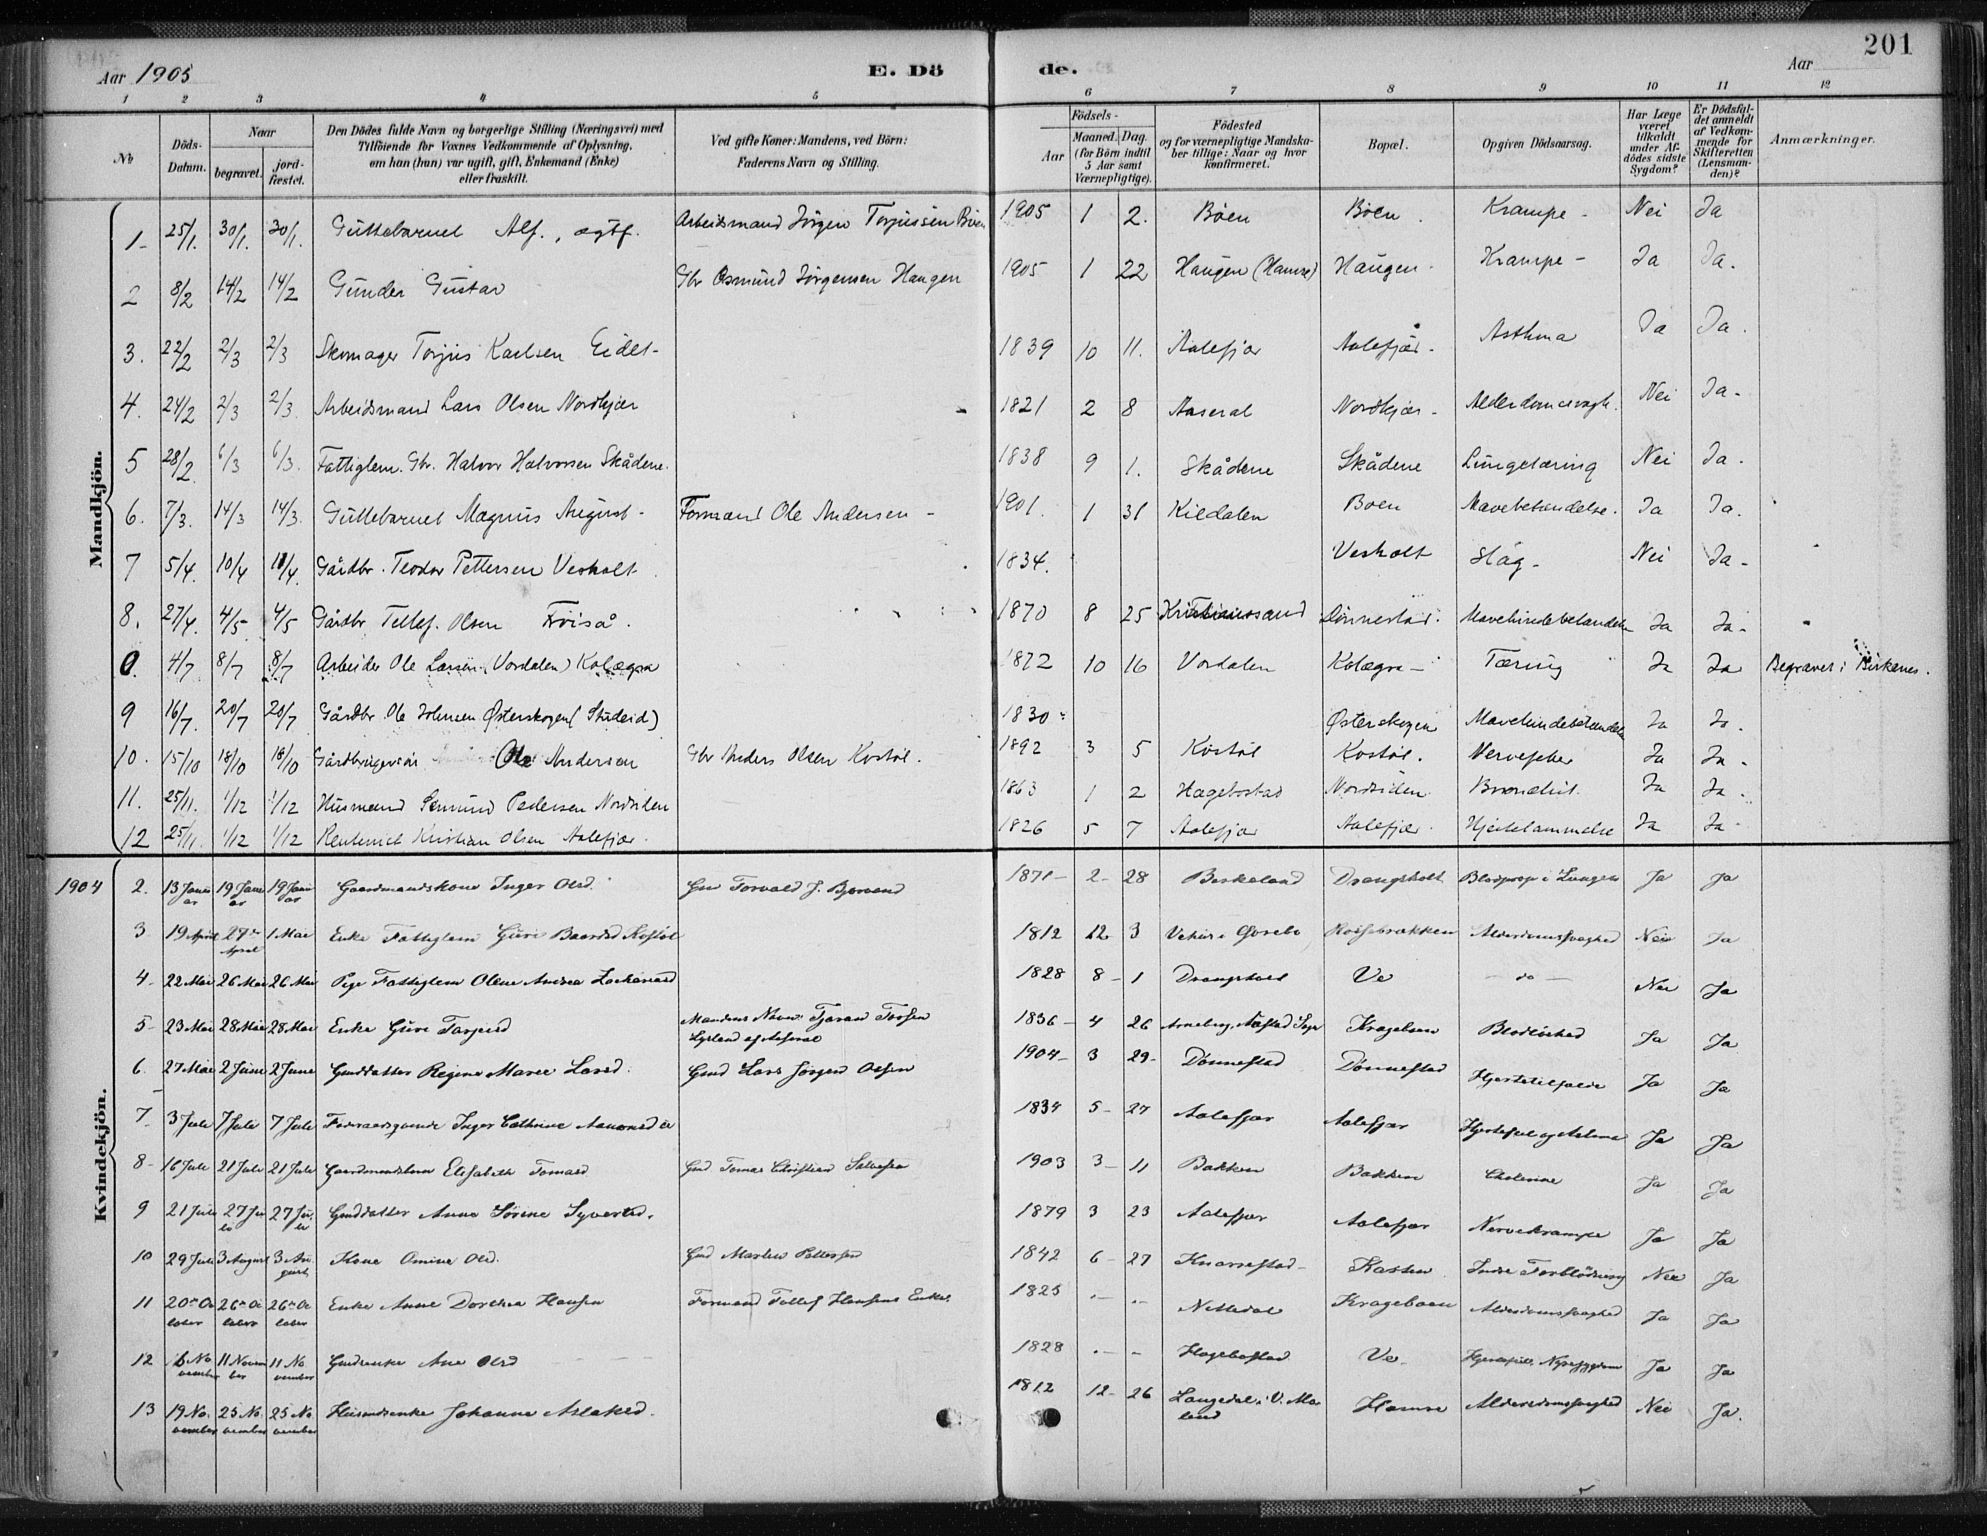 201
Aar 1905
E. Dö
de.
Aar
1 2 3 4 5 6 7 8 9 10 11 12
No
Döds-
Datum.
Naar
begravet.
jord-
fæstet.
Den Dödes fulde Navn og borgerlige Stilling (Næringsvei) med
Tilföiende for Voxnes Vedkommende af Oplysning,
om han (hun) var ugift, gift, Enkemand (Enke)
eller fraskilt.
Ved gifte Koner: Mandens, ved Börn:
Faderens Navn og Stilling.
Födsels-
Aar
Maaned. Dag.
(for Börn indtil
5 Aar samt
Værnepligtige).
Födested
og for værnepligtige Mandska-
ber tillige: Naar og hvor
konfirmeret.
Bopæl.
Opgiven Dödsaarsag.
Har Læge
været
tilkaldt
under Af-
dödes sidste
Sygdom?
Er Dödsfal-
det anmeldt
af Vedkom-
mende for
Skifteretten
(Lensman-
den)?
Anmærkninger.
Mandkjön.
1 25/1. 30/1. 30/1. Guttebarnet Alf., ægtf. Arbeidsmand Jörgen Torjussen Boen 1905 1 2. Boen Boen. Krampe - Nei Ja
2 8/2 14/2 14/2 Gunder Gustav Gbr Osmund Jörgensen Haugen 1905 1 22 Haugen (Hamre) Haugen. Krampe - Ja Ja.
3. 22/2 2/3 2/3 Skomager Torjus Karlsen Eidet- 1839 10 11. Aalefjær Aalefjær. Asthma Ja Ja.
4. 24/2 2/3 2/3. Arbeidsmand Lars Olsen Nordkjær 1821 2 8 Aaseral Nordkjær - Alderdomssvagh. Nei Ja.
5 28/2 6/3 6/3. Fattiglem. Gbr. Halvor Halvorsen Skådene. 1838 9 1. Skådene Skådene Lungetæring Nei Ja.
6. 7/3. 14/3 14/3. Guttebarnet Magnus August - Formand Ole Andersen - 1901. 1 31 Kildalen Boen Mavebetændelse. Ja Ja.
7 5/4. 10/4 10/4. Gårdbr. Teodor Pettersen Vesholt 1834. Vesholt Slag - Nei Ja -
8. 27/4. 4/5 4/5 Gårdbr Tellef. Olsen Froiså. 1870 8 25 Kristianssand Dönnestad. Mavehindebetændelse Ja Ja.
0. 4/7 8/7 8/7 Arbeider Ole Larsen (Vordalen) Kolægra 1872 10 16 Vordalen Kolægra - Tæring Ja Ja Begravet i Birkenes.
9 16/7. 20/7 20/7 Gårdbr Ole Johnsen Østerskogen (Studeid) 1830. Østerskogen Mavehindebetændelse Ja Ja.
10. 15/10 18/10 18/10 Gårdbrugersøn Ole Andersen Gbr Anders Olsen Kostöl. 1892 3 5 Kostöl Kostöl. Nervefeber Ja Ja.
11. 25/11. 1/12 1/12 Husmand Semund Pedersen Nordsiden 1863 1 2 Hægebostad Nordsiden. Bronchit. Ja Ja.
12 25/11. 1/12 1/12 Rentenist Kristian Olsen Aalefjær. 1826 5 7 Aalefjær Aalefjær. Hjertelammelse Ja Ja
Kvindekjön.
1904 2. 13 Janu ar 19 Janu ar 19 Janu ar Gaardmandskone Inger Olsd. Gmd Torvald J. Bjorvand 1871 - 2 - 28 Birkeland Drangsholt Blodprop i Lungen Ja Ja
3 19 April 27de April 1 Mai Enke Fattiglem Guri Baardsd Kostöl 1812 12 3 Vehus i Evrebo Rossebrokken Alderdomssvaghed Nei Ja
4 - 22 Mai 26 Mai 26 Mai Pige Fattiglem Olene Andrea Zachariasd 1828 8 - 1 Drangsholt Ve - do - Nei Ja
5 - 23 Mai 28 Mai 28 Mai Enke Guri Torjusd Mandens Navn: Tjøran Torsen 1836 - 4 26 Kragelsen Blodlöshed Ja Ja
6. 27 Mai 2 Juni 2 June Gmddatter Regine Marie Larsd. Gmd Lars Jørgen Olsen 1904 - 3 29 - Dönnestad Dönnestad Hjertetilfælde Ja Ja
7 - 3 Juli 7 Juli 7 Juli Foderaadsgaaende Inger Cathrine Aanonsd 1834 5 - 27 Aalefjær Aalefjær Ja Ja
8 - 16 Juli 21 Juli 21 Juli Elisabeth Tomasd Gmd Tomas Christian Salvesen 1903 3 - 11 Bakken Bakken Cholerine Ja Ja
9 21 Juli 27 Ju li 27 Ju li Gmddatter Anne Sörine Syvertsd. 1879 3 23 Aalefjær Aalefjær Nervekrampe Ja Ja
10 29 Juli 3 August 3 Au gust Kone Omine Olsd. Gmd Martin Pettersen 1842 6 - 27 Knarrestad - Kasten Indre Forblödning Nei Ja
11 20de Oc tober 26de Oc tober 26de Oc tober Enke Anne Dorthea Hansen Formand Tellef Hansens Enke. 1825 Nettedal Krageboen Alderdomssvaghed Ja Ja
12 No vember 11 Novem ber 11 No vember Gmdsenke Ane Olsd 1828 Hægebostad Ve Ja Ja
13 19 No. vember 25 No vember 25 No vember Husmdsenke Johanne Aslaksd. 1812 12 - 26 Langedal i V. Mo land Hamre Alderdomssvaghed Nei Ja.